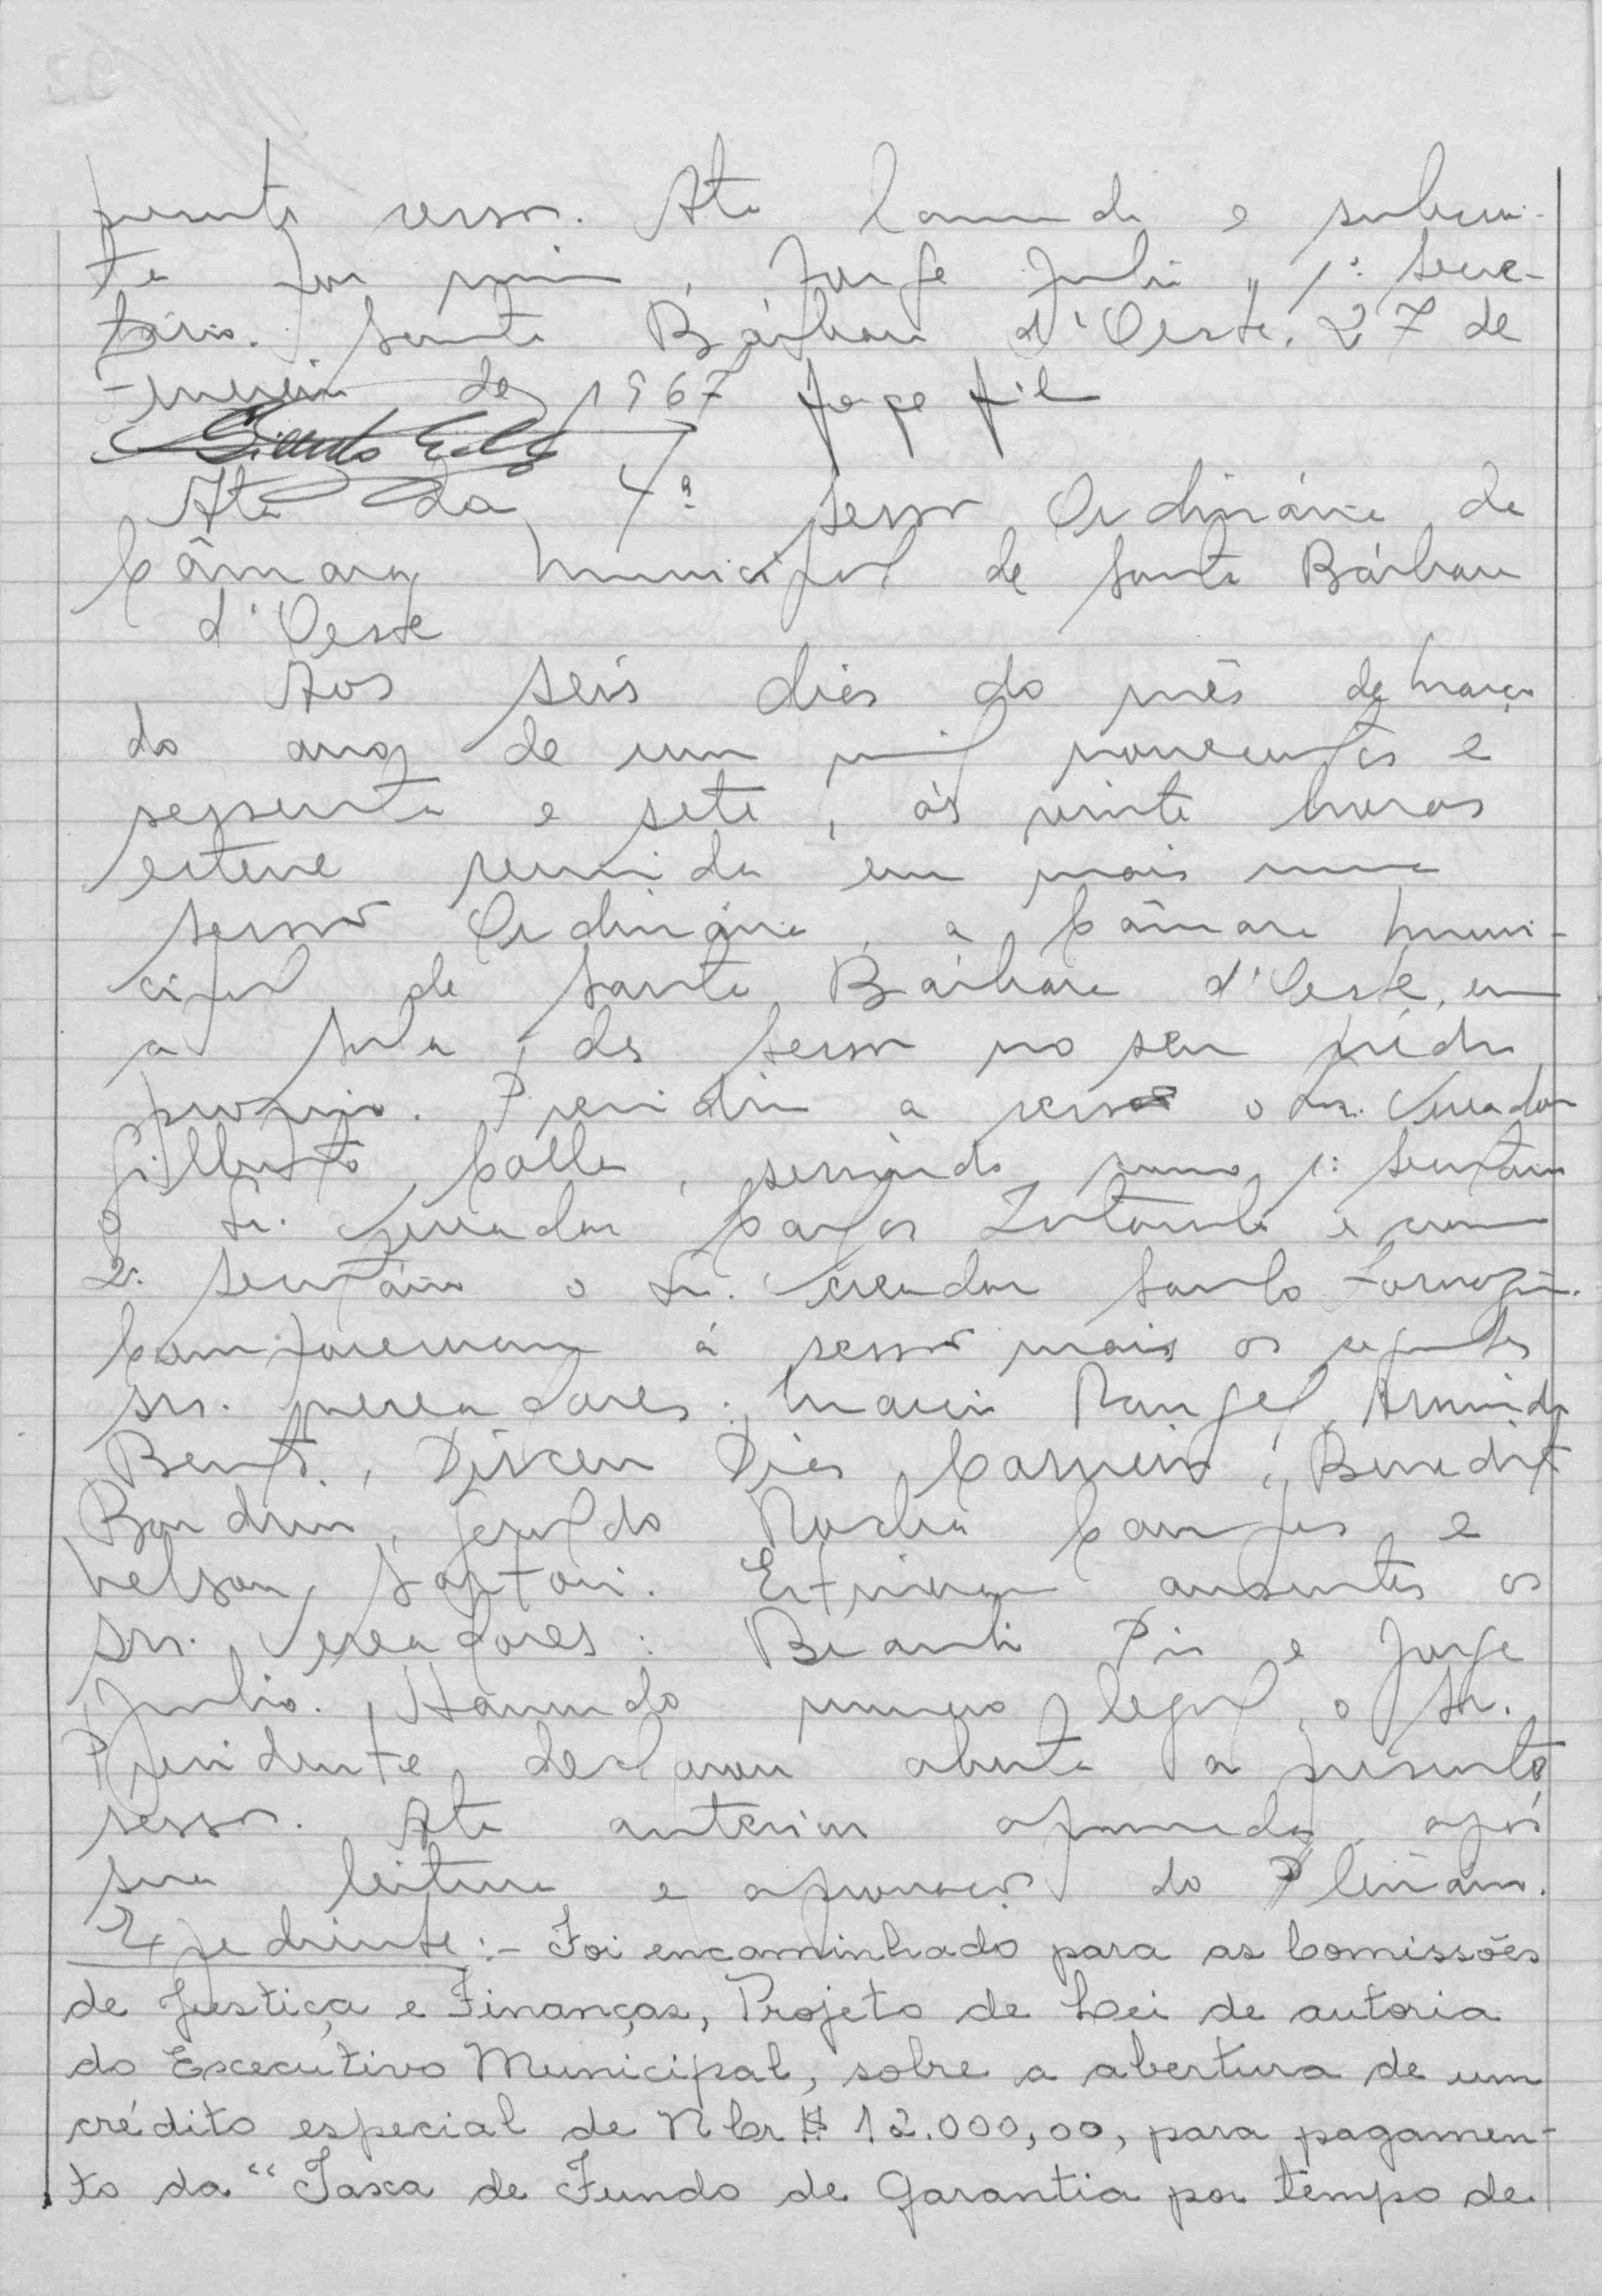 presente sessão. Ata lavrada e subscri-
ta por mim, Jorge Julio, 1º Secre-
tário. Santa Bárbara d'Oeste, 27 de
fevereiro de 1967 Jorge Julio
Ata da 4ª sessão Ordinária da
Câmara Municipal de Santa Bárbara
d'Oeste
Aos seis dias do mês de março
do ano de um mil novecentos e
sessenta e sete, às vinte horas
esteve reunida em mais uma
sessão Ordinária, a Câmara Muni-
cipal de Santa Bárbara d'Oeste, em
a sala das sessões no seu prédio
proprio. Presidiu a sessão o Sr. Vereador
servindo como 1º Secretário
o Sr. Vereador Carlos e como
2º Secretário o Sr. Vereador
Compareceram à sessão mais os seguintes
srs. vereadores: Rangel, Armindo
Dirceu Dias Carneiro, Benedito
Geraldo Rocha Campos e
Nelson Sartori. Estiveram ausentes os
srs. Vereadores: e Jorge
Julio. Havendo numero legal, o Sr.
Presidente declarou aberta a presente
sessão. Ata anterior aprovada após
sua leitura e aprovação do Plenário.
Expediente:- Foi encaminhado para as Comissões
de Justiça e Finanças, Projeto de Lei de autoria
do Executivo Municipal, sobre a abertura de um
crédito especial de NCr$ 12.000,00, para pagamen-
to da "Taxa de Fundo de Garantia por tempo de